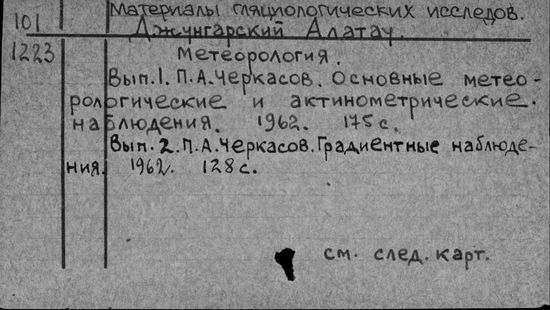 101 Материалы гляциологических исследов.
Джунгарский Алатау.
1223 Метеорология.
Вып.1. П.А.Черкасов. Основные метео-
рологические и актинометрические.
наблюдения. 1962. 175 с.
Вып.2. П.А.Черкасов. Градиентные наблюде-
ния. 1962. 128 с.
см. след. карт.